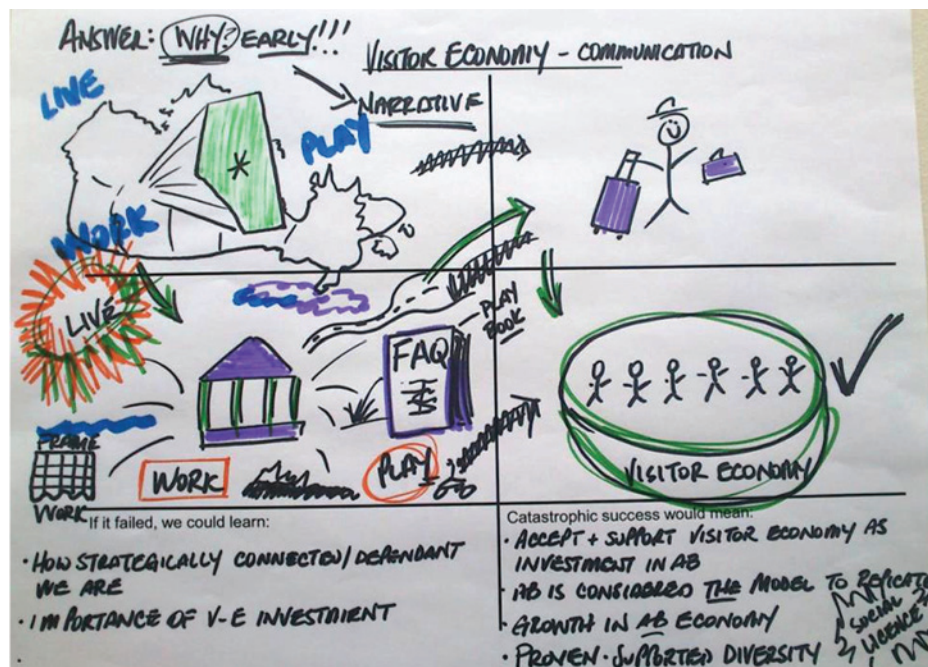 ANSWER: WHY? EARLY!!!
VISITOR ECONOMY - COMMUNICATION
NARRATIVE
LIVE
PLAY
WORK
LIVE
PLAY
BOOK
FAQ
FRAME
WORK
WORK
PLAY
VISITOR ECONOMY
If it failed, we could learn:
· HOW STRATEGICALLY CONNECTED/DEPENDANT
WE ARE
· IMPORTANCE OF V-E INVESTMENT
Catastrophic success would mean:
· ACCEPT + SUPPORT VISITOR ECONOMY AS
INVESTMENT IN AB
· AB IS CONSIDERED THE MODEL TO REPLICATE
· GROWTH IN AB ECONOMY
· PROVEN · SUPPORTED DIVERSITY
SOCIAL
LICENCE